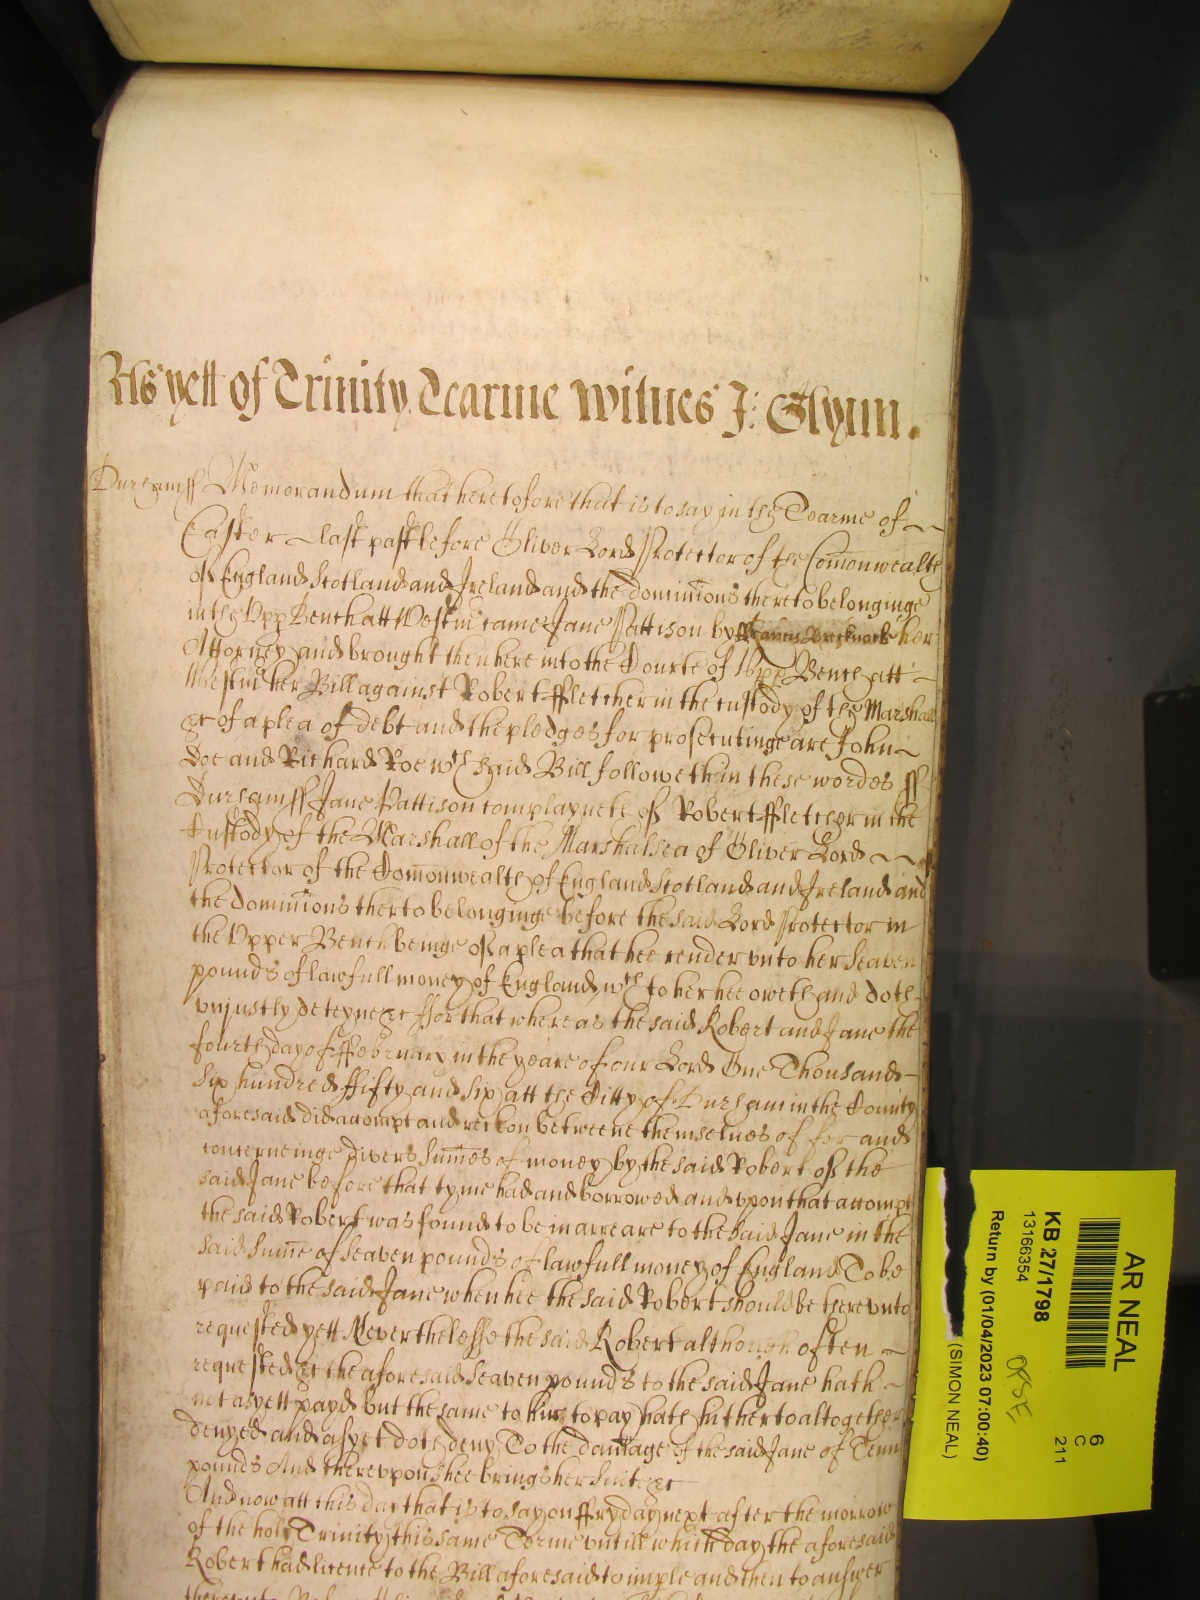 As yett of Trinity Tearme Witnes J: Glynn.
Durham ss Memorandum that heretofore that is to say in the Tearme of
Easter last past before Oliver Lord Protector of the Comonwealth
of England Scotland and Ireland and the dominions thereto belonginge
in the Upp Bench att Westm came Jane Pattison by her
Attorney and brought then here into the Courte of Upp Bench att
Westm her Bill against Robert ffletcher in the custody of the Marshall
&c of a plea of debt and the pledges for prosecutinge are John
Doe and Richard Roe wch said Bill followeth in these wordes ss
Durham ss Jane Pattison complayneth of Robert ffletcher in the
Custody of the Marshall of the Marshalsea of Oliver Lord
Protector of the Comonwealth of England Scotland and Ireland and
the dominions therto belonginge before the said Lord Protector in
the Upper Bench beinge of a plea that hee render unto her seaven
pounds of lawfull money of England wch to her hee oweth and doth
uniustly deteyne &c ffor that whereas the said Robert and Jane the
fourth day of ffebruary in the yeare of our Lord One Thousand
six hundred ffifty and six att the Citty of Durham in the County
aforesaid did accompt and reckon betweene themselves of for and
concerneinge divers sumes of money by the said Robert of the
said Jane before that tyme had and borrowed and upon that accompt
the said Robert was found to be in arreare to the said Jane in the
said sume of seaven pounds of lawfull money of England To be
paid to the said Jane when hee the said Robert should be thereunto
requested yett Neverthelesse the said Robert although often
requested &c the aforesaid seaven pounds to the said Jane hath
not as yett payd but the same to her to pay hath hitherto altogether
denyed and as yet doth deny To the damage of the said Jane of Tenn
pounds And thereupon shee brings her suite &c
And now att this day that is to say on ffryday next after the morrow
of the holy Trinity this same Terme untill which day the aforesaid
Robert had licence to the Bill aforesaid to imple and then to answer
AR NEAL
KB 27/1798
13166354
Return by (01/04/2023 07:00:40)
(SIMON NEAL)
6
C
211